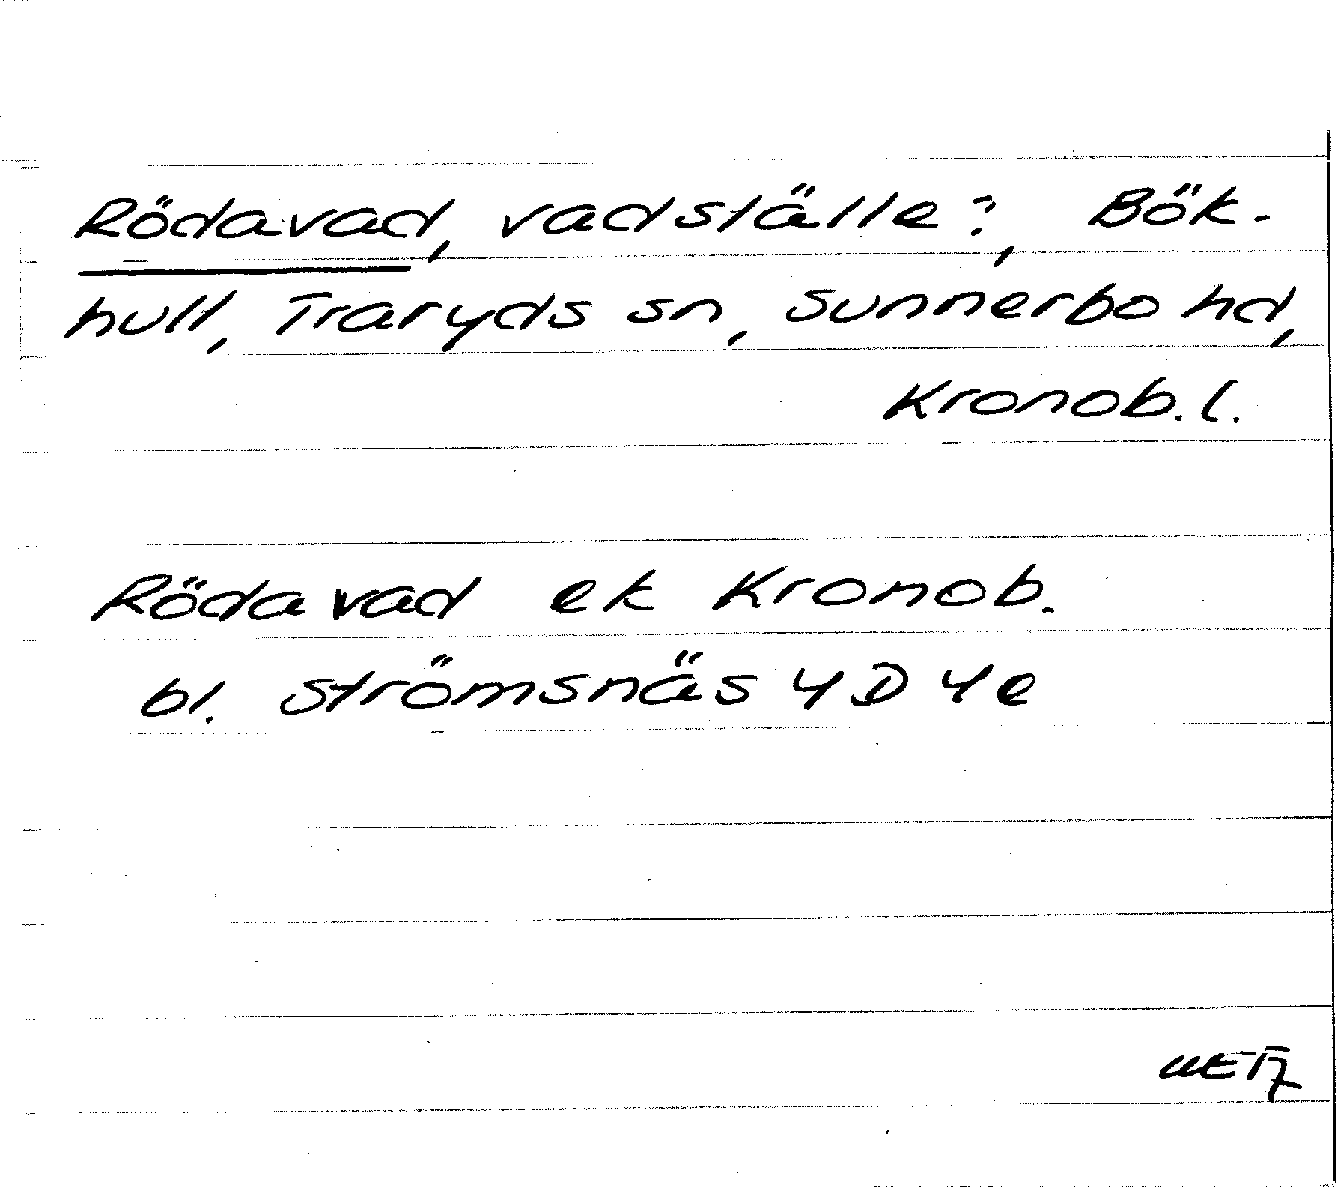 Rödavad, vadställe?, Bök-
hull, Traryds sn, Sunnerbo hd,
Kronob. l.
Röda vad ek Kronob.
bl. Strömsnäs 4D 4e